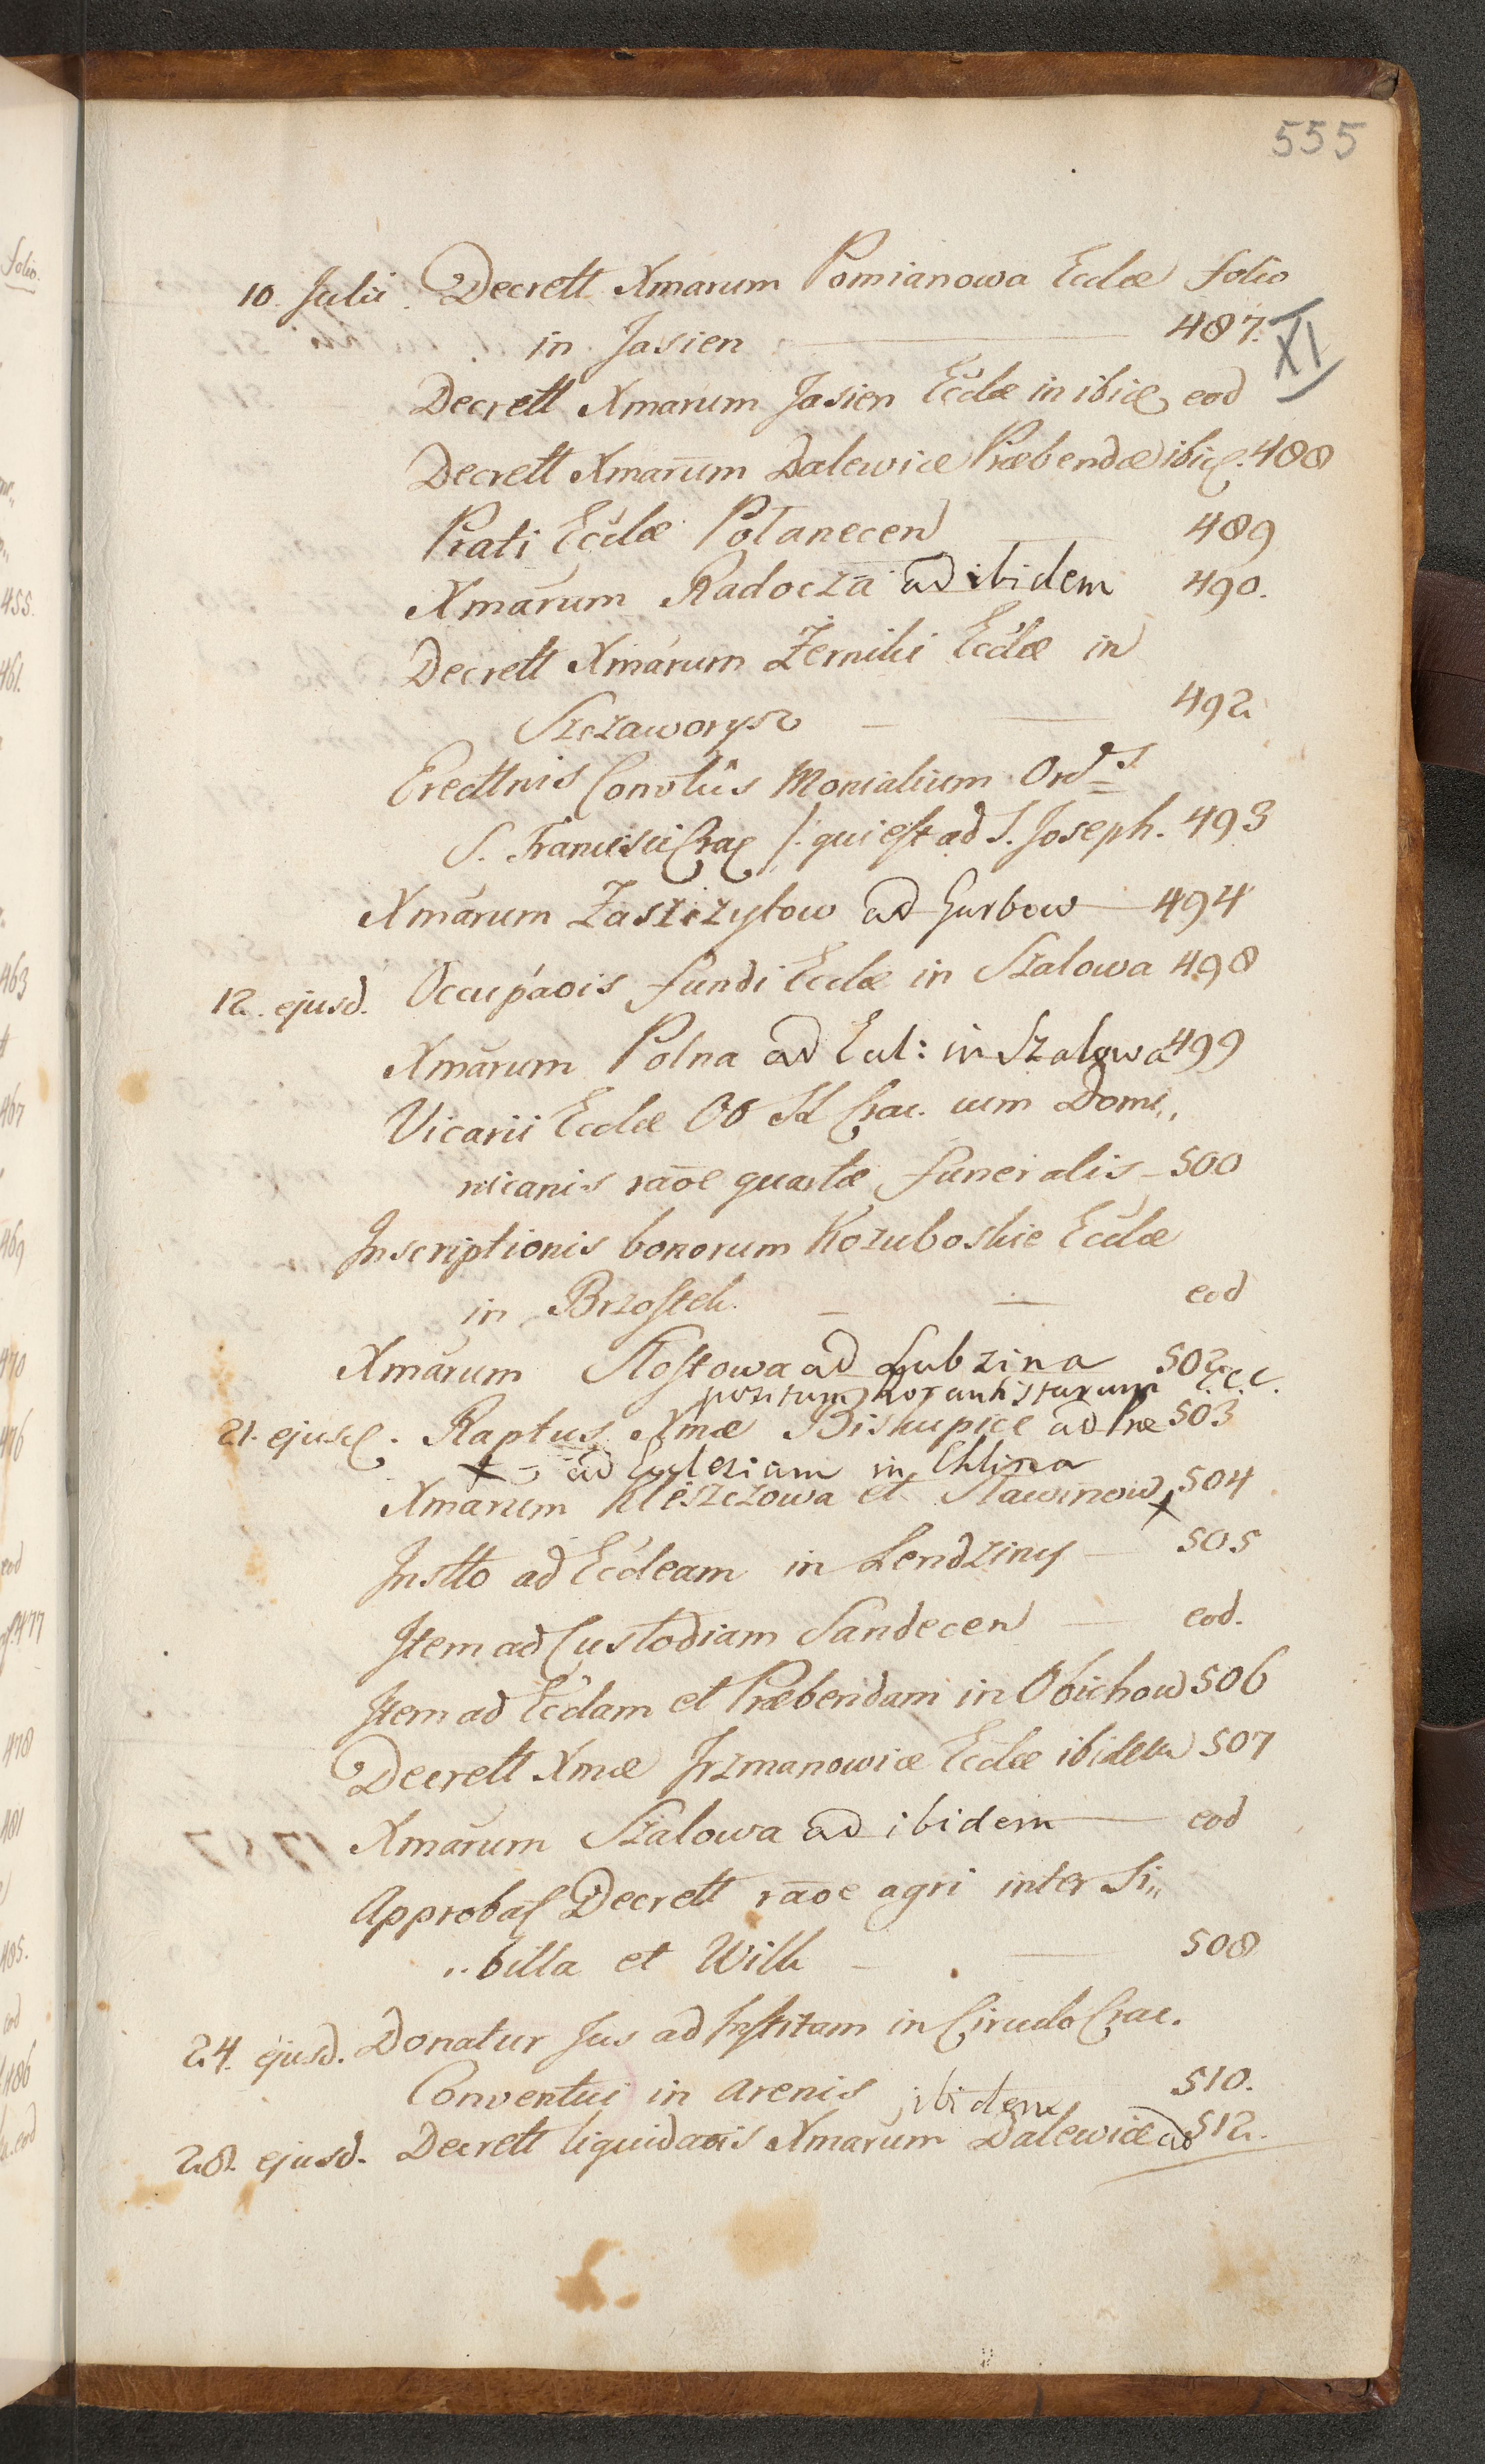 555
10 Julii. Decrett Xmarum Pomianowa Ecclæ folio
in Jasien 487.
XI
Decrett Xmarum Jasien Ecclæ in ibid eod
Decrett Xmarum Dalewice Præbendæ ibid. 488
Prati Ecclæ Połanecen 489
Xmarum Radocza ad ibidem 490.
Decrett Xmarum Żerniki Ecclæ in
Szczaworysz 492
Erecttnis Convtûs Monialium Ord:s
S. Francisci Crac /: qui est ad S. Joseph. 493
Xmarum Zaszczytow ad Gurbow 494
12. ejusd. Occupaois fundi Ecclæ in Szalowa 498
Xmarum Polna ad Ecl: in Szalowa 499
Vicarii Ecclæ OO SS Crac. cum Domi,,
nicanis raõe quartæ funeralis 500
Inscriptionis bonorum Kozuboskie Ecclæ
in Brzostek. eod
Xmarum Stostowa ad Lubzina 502
positum Rorantistarum E.C.C.
21. ejusd. Raptus Xmæ Biskupice ad Præ 503
x ad Ecclesiam in Chlina
Xmarum Kleszczowa et Sławinow x 504
Instto ad Eccleam in Lendziny 505
Item ad Custodiam Sandecen eod.
Item ad Eccłam et Præbendam in Obichow 506
Decrett Xmæ Jrzmanowice Ecclæ ibidem 507
Xmarum Szalowa ad ibidem eod
Approbač Decrett raõe agri inter Si,,
,,billa et Wilk 508
24. ejusd. Donatur Jus ad Institam in Circulo Crac.
Conventui in Arenis 510.
ibidem
28. ejusd. Decrett liquidaois Xmarum Dalewice ad 512.
folio.
455.
461.
463
467
469
470
476
eod
477
478
481
485.
eod
486
eod